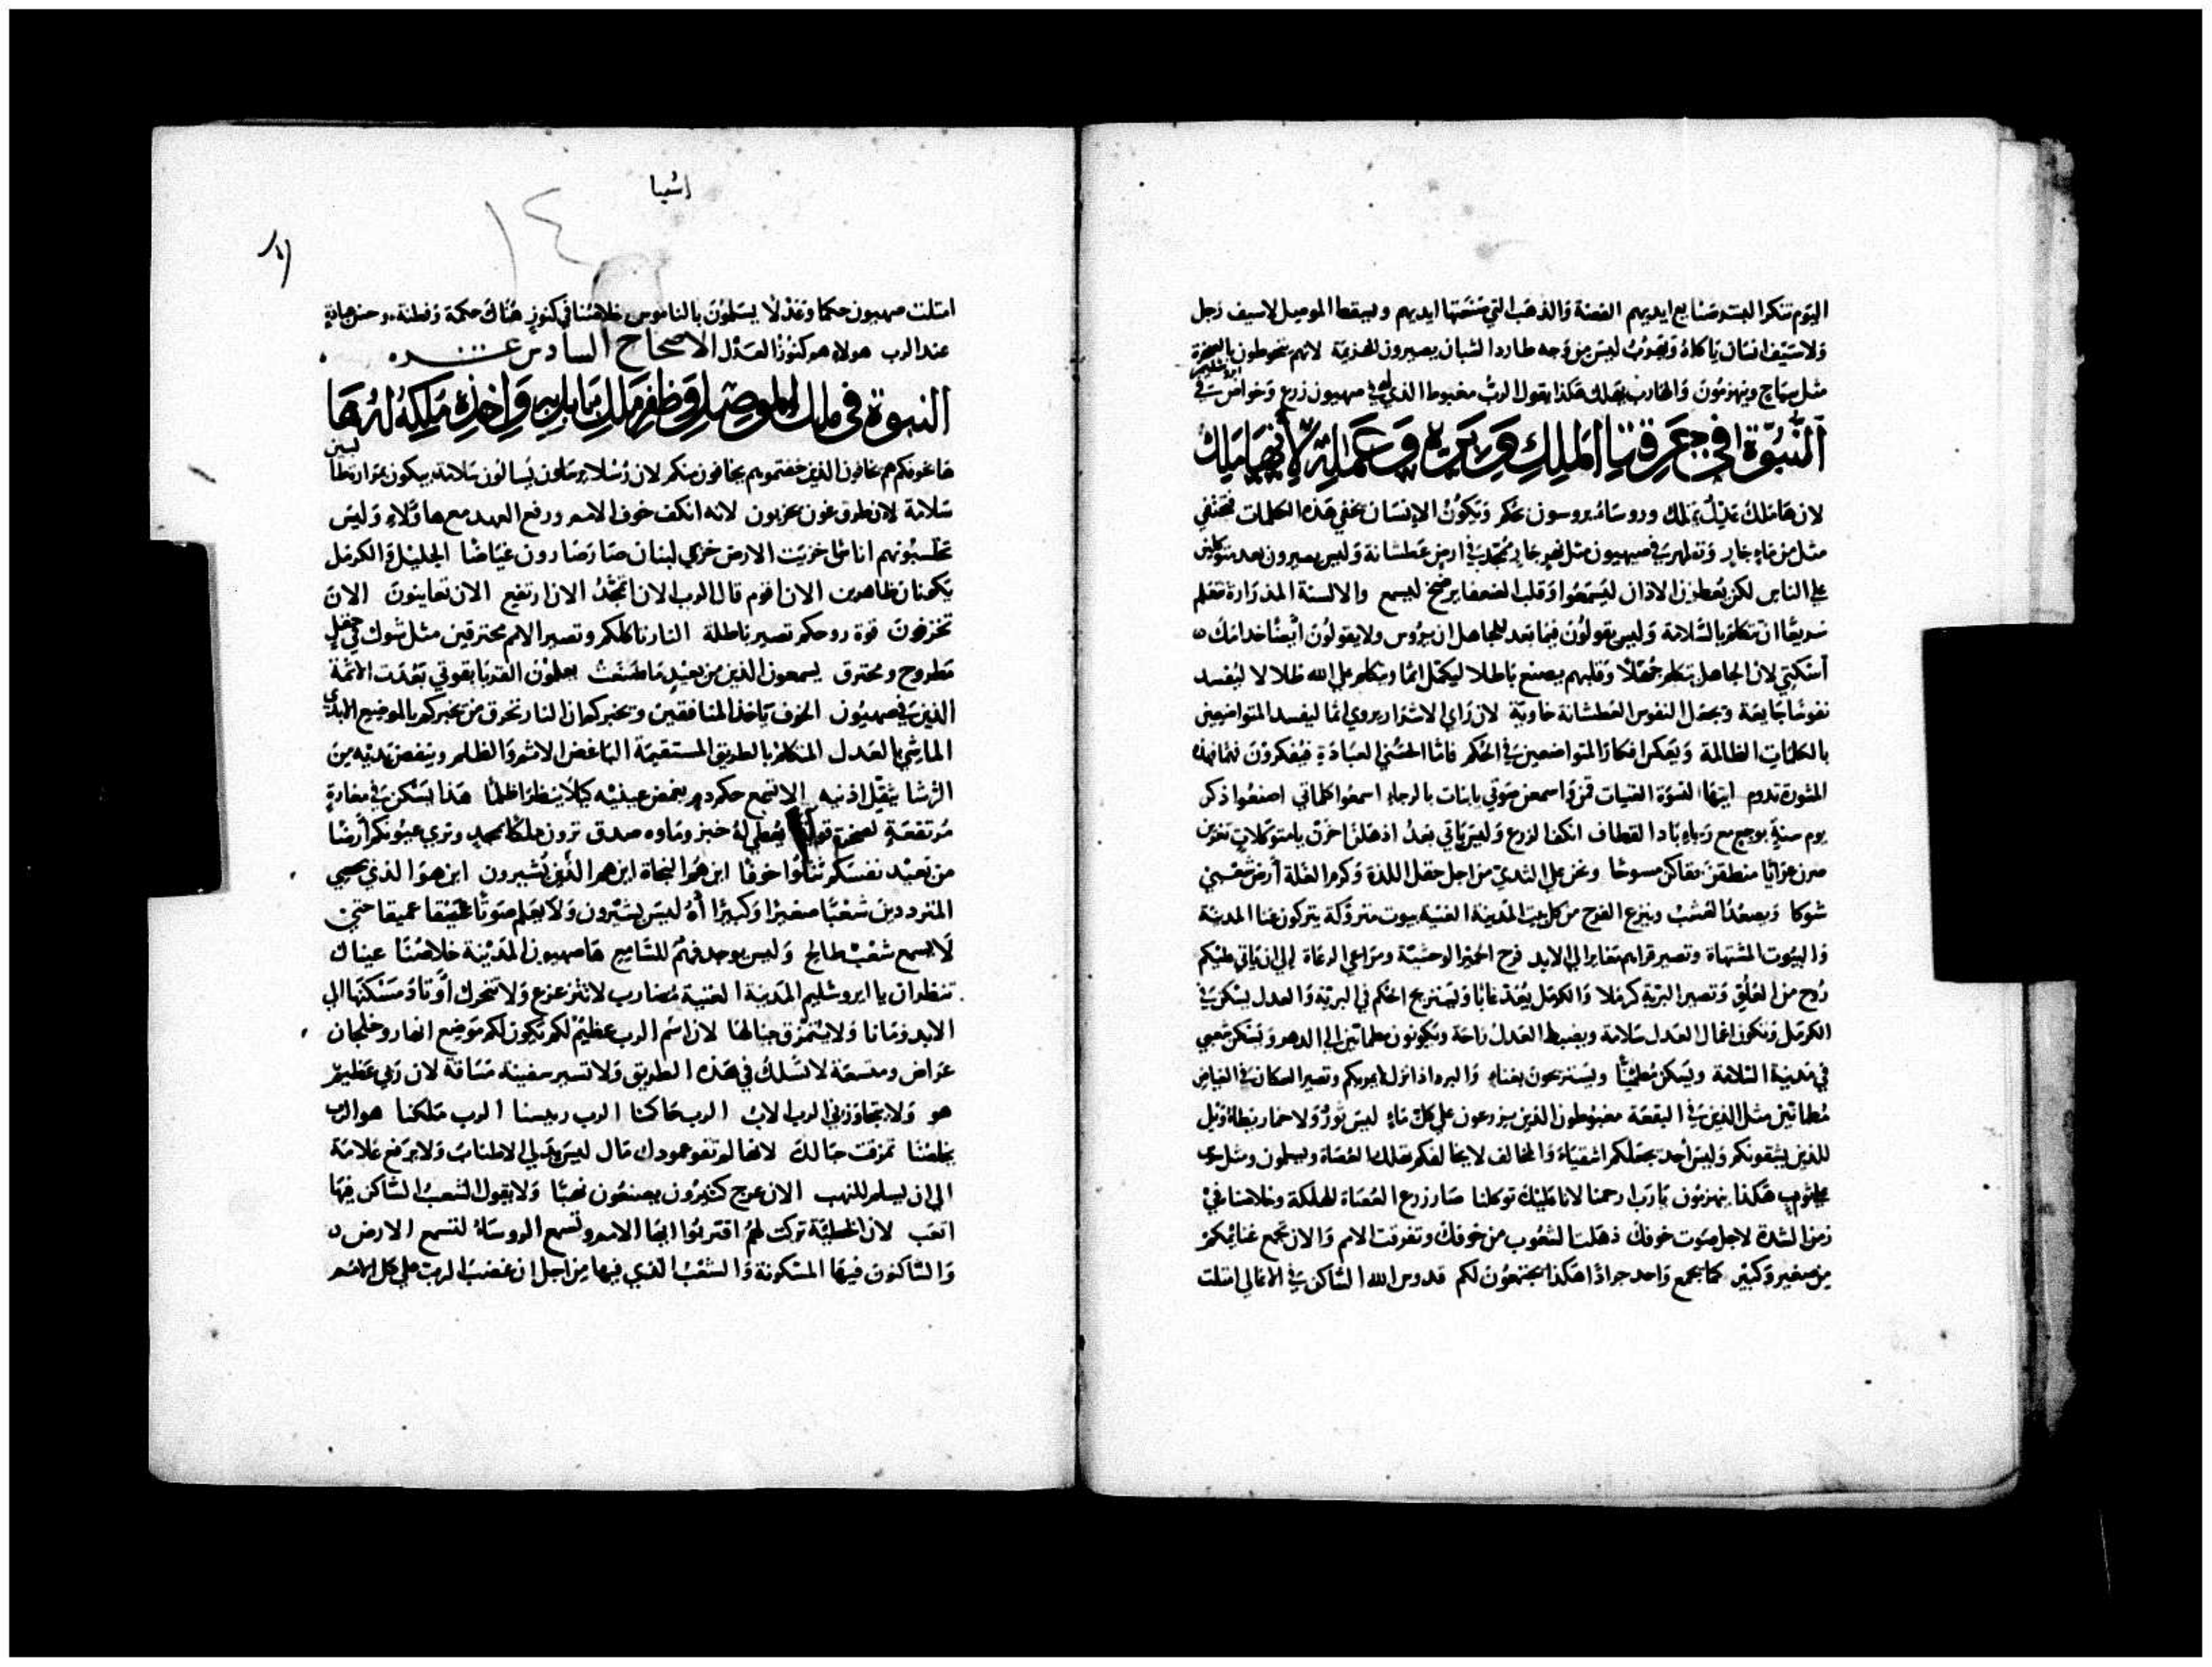 اليوم تنكر البشر صنايع ايديهم الفضة والذهب التي صنعتها ايديهم ويسقط الموصل لا سيف رجل
ولا سيف انسان ياكله ويهرب ليس من وجه طارد الشبان يصيرون للهزيمة لانهم يحوطون بالصخرة
مثل سياج وينهزمون والهارب يهلك هكذا يقول الرب مغبوط الذي له في صهيون زرع وخواص في
اورشليم
النبوة في حزقيا الملك وبره وعمله لانها ملك
لان ها ملك عدل يملك وروساه يروسون بحكم ويكون الانسان يخفي هذه الكلمات فتختفي
مثل من ماء جار وتظهر في صهيون مثل نهر جار مجد في ارض عطشانة وليس يصيرون بعد متوكلين
على الناس لكن يعطون الاذان ليسمعوا وقلب الضعفا يرضخ ليسمع والالسنة المذرارة تتعلم
سريعا ان تتكلم بالسلامة وليس يقولون فيما بعد للجاهل ان يروس ولا يقولون ايضا خدامك
اسكتي لان الجاهل يتكلم جهلا وقلبهم يصنع باطلا ليكمل اثما ويتكلم على الله ظلالا ليفسد
نفوسا جايعة ويجعل النفوس العطشانة خاوية لان راي الاشرار يروي اثما ليفسد المتواضعين
بالكلمات الظالمة ويعكس افكار المتواضعين في الحكم فاما الحسني العبادة فيفكرون فهما فهذه
المشورة تدوم ايتها النسوة الغنيات قمن واسمعن صوتي يا بنات بالرجاء اسمعوا كلماتي اصنعوا ذكر
يوم سنة بوجع مع رجاء باد القطاف انكف الزرع وليس ياتي بعد اذهلن احزن يا متوكلات تعرين
صرن عرايا منطقن حقاكن مسوحا وعن على الثدي من اجل حقل اللذة وكرم الغلة ارض شعبي
شوكا ويصعد العشب وينزع الفرح من كل بيت المدينة الغنية بيوت متروكة يتركون غنا المدينة
والبيوت المشتهاة وتصير قراهم مغاير الى الابد فرح الحمير الوحشية ومراعي الرعاة الى ان ياتي عليكم
روح من العلو وتصير البرية كرملا والكرمل يعد غابا ويستريح الحكم في البرية والعدل يسكن في
الكرمل وتكون اعمال العدل سلامة ويضبط العدل راحة ويكونون مطمانين الى الدهر ويسكن شعبي
في مدينة السلامة ويسكن مطمئنا ويستريحون بغناء والبرد اذا نزل لا يوريكم وتصير السكان في الغياض
مطمانين مثل الذين في البقعة مغبوطون الذين يزرعون على كل ماء ليس ثور ولا حمار يطاه ويل
للذين يشقونكم وليس احد يجعلكم اشقياء والمخالف لا يخالفكم تهلك العصاة ويسلمون ومثل سوس
على ثوب هكذا ينهزمون يا رب ارحمنا لانا عليك توكلنا صار زرع العصاة للهلكة وخلاصنا في
زمن الشدة لاجل صوت خوفك ذهلت الشعوب من خوفك وتفرقت الامم والان تجمع غنائمكم
من صغير وكبير كما يجمع واحد جرادا هكذا يجتمعون لكم قدوس الله الساكن في الاعالي امتلت
اشعيا
١٤
امتلت صهيون حكما وعدلا يسلمون بالناموس خلاصنا في كنوز هناك حكمة وفطنة وحسن عبادة
عند الرب هولاء هم كنوز العدل الاصحاح السادس عشر
النبوة في ملك الموصل وظفر ملك بابل به واخذه مملكته لها
ها خوفكم هم يخافون الذين خفتموهم يخافون منكم لان رسلا يرسلون يسالون سلامة يبكون بمرارة طالبين
سلامة لان طرق هون يخربون لانه انكف خوف الامم ورفع العهد مع هاولاء وليس
تحسبونهم اناسا خزيت الارض خزي لبنان صار صارون غياضا الجليل والكرمل
يكونان ظاهرين الان اقوم قال الرب الان اتمجد الان ارتفع الان تعاينون الان
تخزون قوة روحكم تصير باطلة النار تاكلكم وتصير الامم محترقين مثل شوك في حقل
مطروح ومحترق يسمعون الذين من بعيد ما صنعت يعلمون القربا بقوتي بعدت الاثمة
الذين في صهيون الخوف ياخذ المنافقين ويخبركم ان النار تحرق من يخبركم بالموضع الابدي
الماشي بالعدل المتكلم بالطريق المستقيمة الباغض الاثم والظلم وينفض يديه من
الرشا يثقل اذنيه الا تسمع حكم دم يغمض عينيه كيلا ينظر اظلما هذا يسكن في مغارة
مرتفعة لصخرة قوية يعطي له خبز وماوه صدق ترون ملكا بمجد وتري عيونكم ارضا
من بعيد نفسكم تتلوا خوفا اين هو النجاة اين هم الذين يشيرون اين هو الذي يحصي
المترددين شعبا صغيرا وكبيرا اه ليس يشيرون ولا يعلم صوتا عميقا عميقا حتى
لا يسمع شعب طالح وليس يوجد فهم للسامع ها صهيون المدينة خلاصنا عيناك
تنظران يا ايروشليم المدينة الغنية مضارب لا تتزعزع ولا تتحرك اوتاد مسكنها الى
الابد زمانا ولا يتمزق حبالها لان اسم الرب عظيم لكم تكون لكم موضع انهار وخلجان
عراض ومتسعة لا تسلك في هذه الطريق ولا تسير سفينة مسافة لان ربي عظيم
هو ولا يتجاوزني الرب الاب الرب حاكمنا الرب رييسنا الرب ملكنا هو الرب
يخلصنا تمزقت حبالك لانها لم تقو عمودك مال ليس يدلي الاطناب ولا يرفع علامة
الى ان يسلم للنهب الان عرج كثيرون يصنعون نهبا ولا يقول الشعب الساكن فيها
اتعب لان الخطية تركت لهم اقتربوا ايها الامم وتسمع الروساه لتسمع الارض
والساكنون فيها المسكونة والشعب الذي فيها من اجل ان غضب الرب على كل الامم